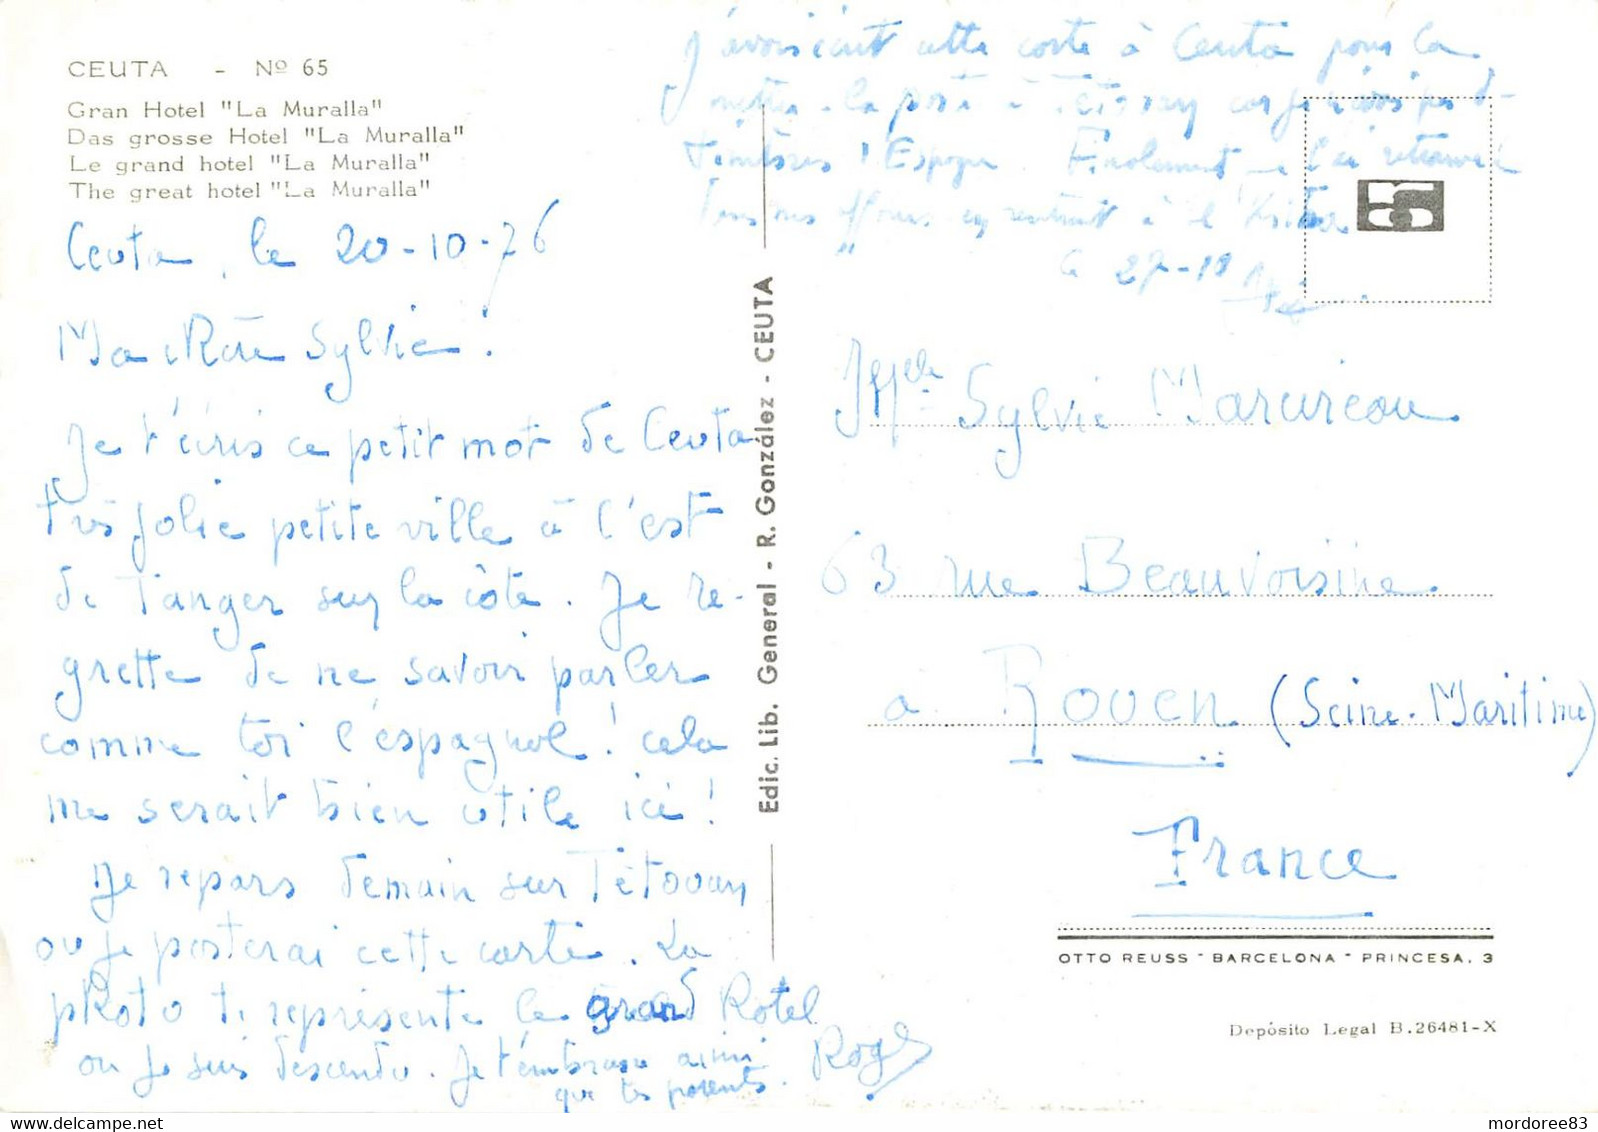 CEUTA - Nº 65
Gran Hotel "La Muralla"
Das grosse Hotel "La Muralla"
Le grand hotel "La Muralla"
The great hotel "La Muralla"
Ceuta, le 20-10-76
Ma chère Sylvie !
Je t'écris ce petit mot de Ceuta
très jolie petite ville à l'est
de Tanger sur la côte. Je re-
grette de ne savoir parler
comme toi l'espagnol ! cela
me serait bien utile ici !
Je repars demain sur Tétouan
ou je posterai cette carte. La
photo te représente le grand hotel
ou je suis descendu. Je t'embrasse ainsi
que tes parents. Roger
Edic. Lib. General - R. González - CEUTA
J'avais écrit cette carte à Ceuta pour la
mettre à la poste à Tétouan car je n'avais pas de
timbres d'Espagne. Finalement je l'ai retrouvée
dans mes affaires en rentrant à
le 27-10
Melle Sylvie Marcureau
63 rue Beauvoisine
à Rouen (Seine-Maritime)
France
OTTO REUSS - BARCELONA - PRINCESA, 3
Depósito Legal B.26481-X
mordoree83
delcampe.net